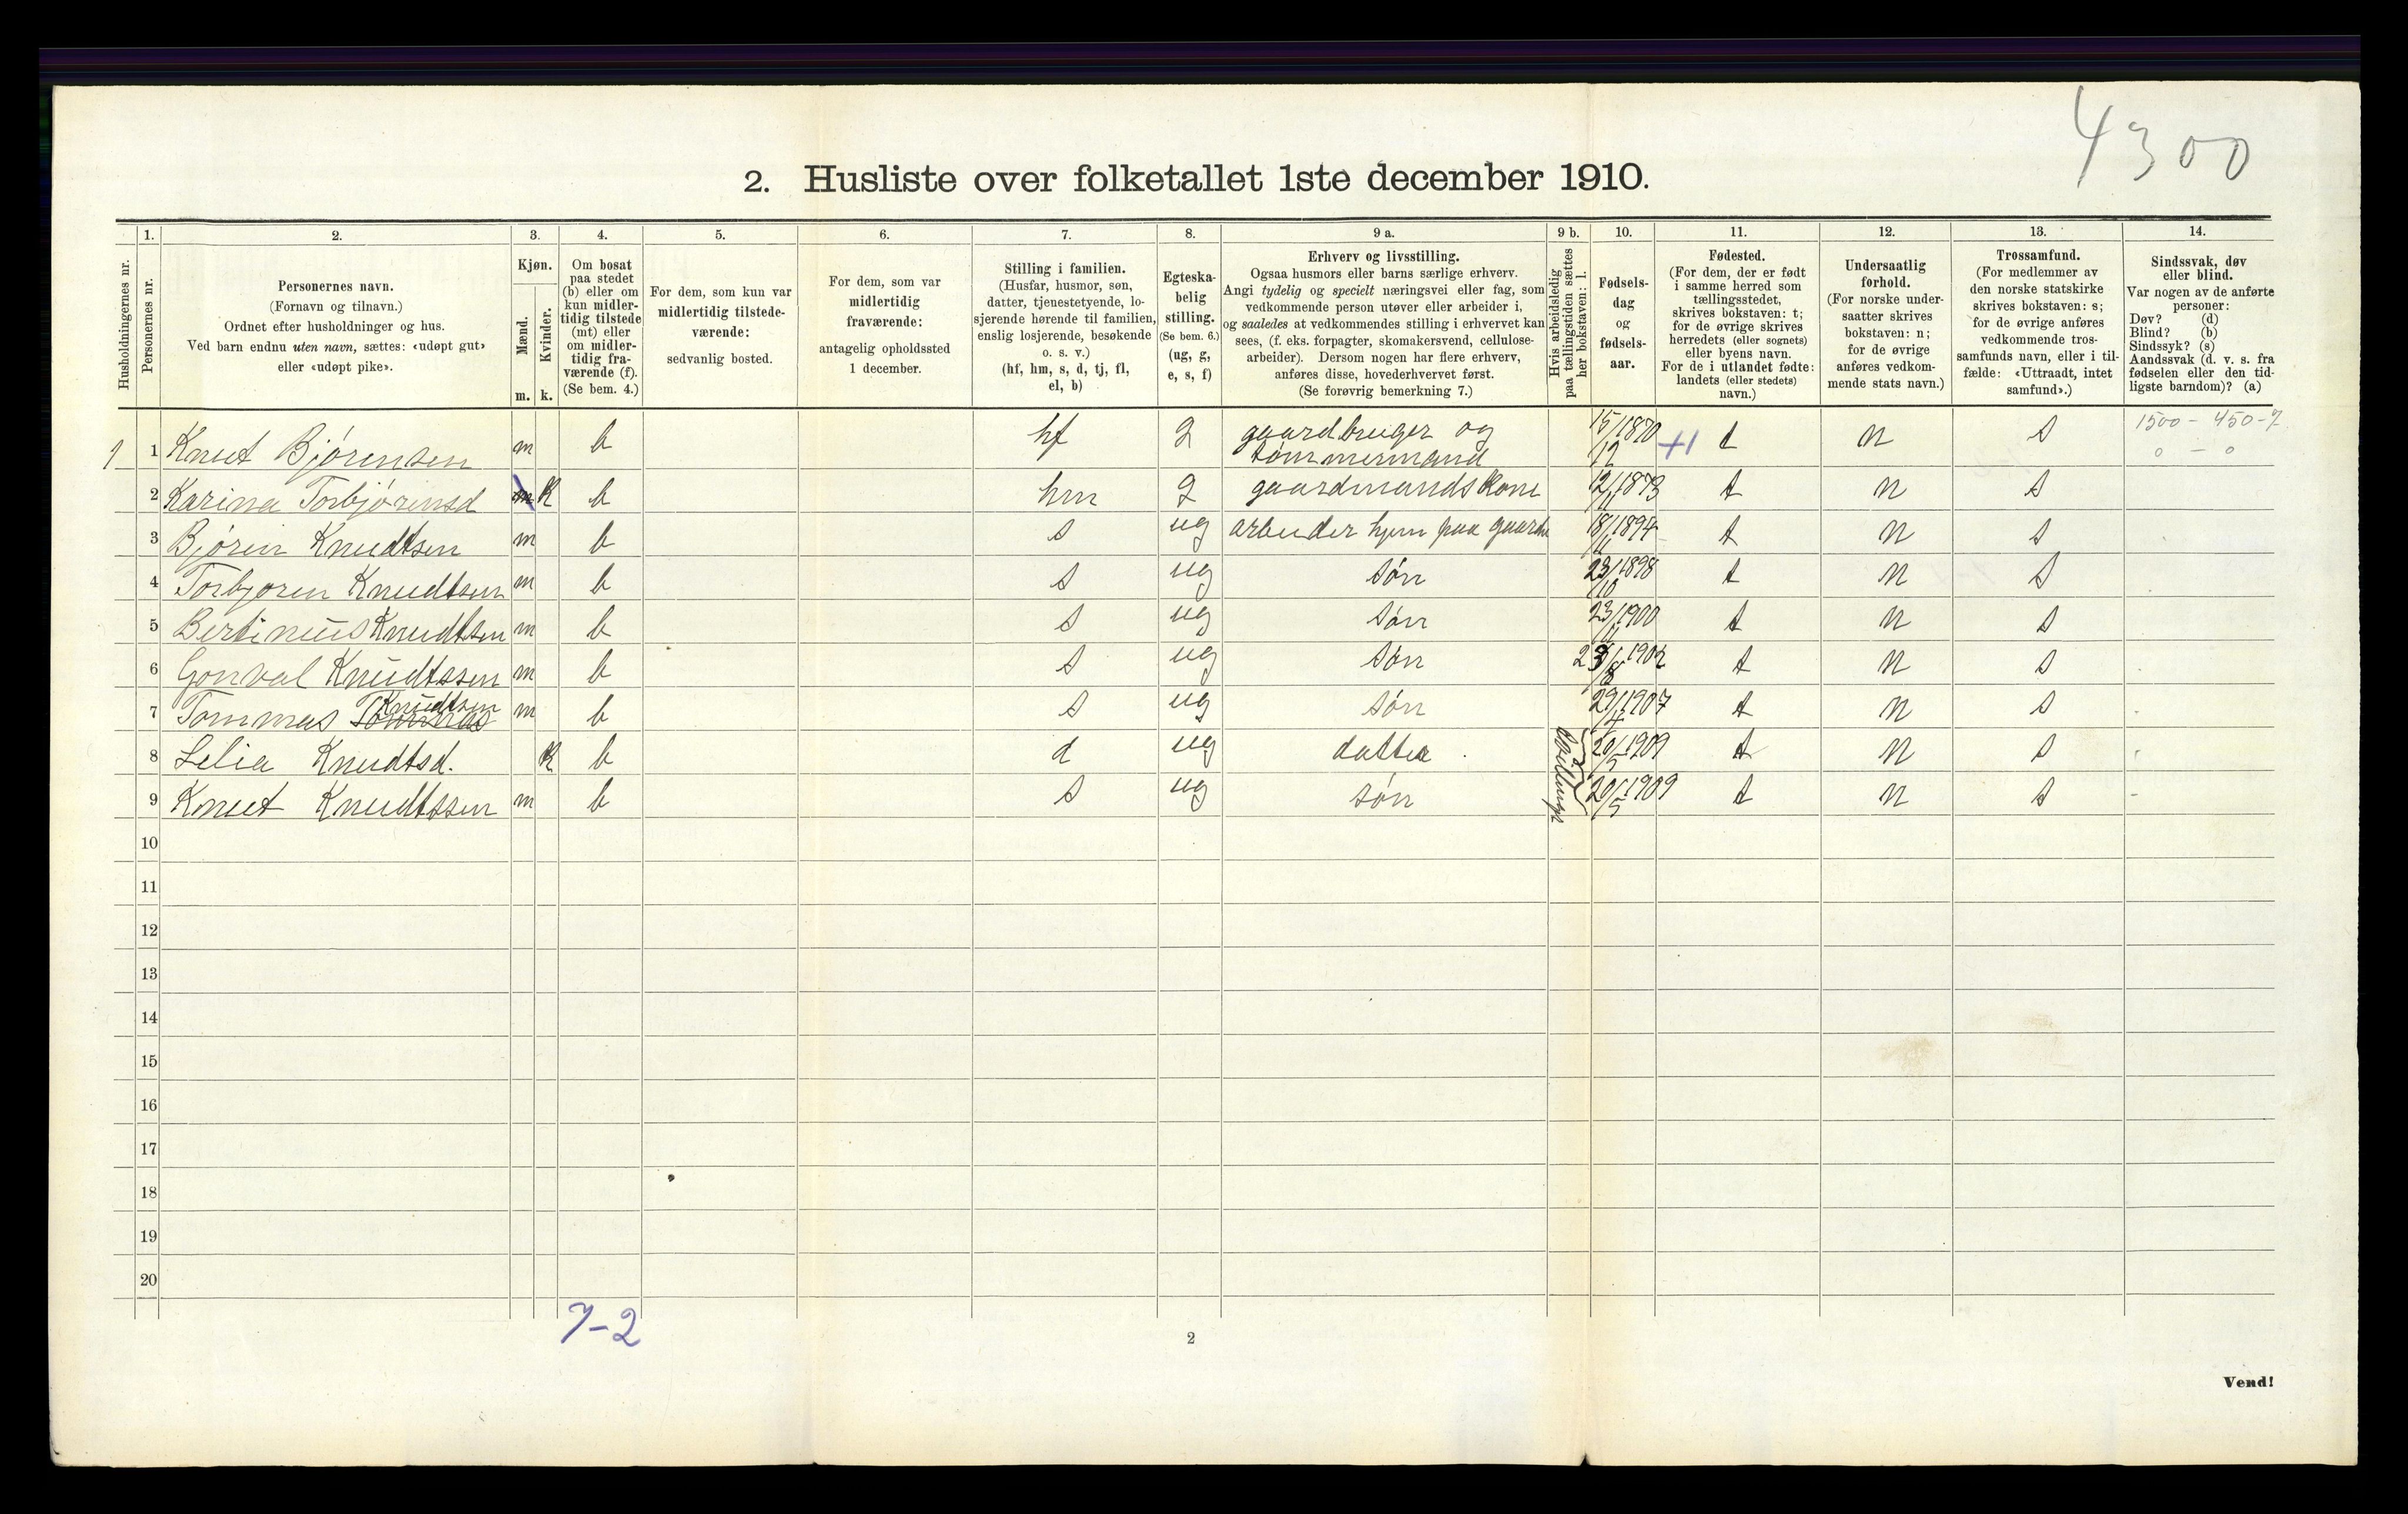 4300
2. Husliste over folketallet 1ste december 1910.
Husholdningernes nr.
1.
Personernes nr.
2.
Personernes navn.
(Fornavn og tilnavn.)
Ordnet efter husholdninger og hus.
Ved barn endnu uten navn, sættes: «udøpt gut»
eller «udøpt pike».
3.
Kjøn.
Mænd.
Kvinder.
m. k.
4.
Om bosat
paa stedet
(b) eller om
kun midler-
tidig tilstede
(mt) eller
om midler-
tidig fra-
værende (f).
(Se bem. 4.)
5.
For dem, som kun var
midlertidig tilstede-
værende:
sedvanlig bosted.
6.
For dem, som var
midlertidig
fraværende:
antagelig opholdssted
1 december.
7.
Stilling i familien.
(Husfar, husmor, søn,
datter, tjenestetyende, lo-
sjerende hørende til familien,
enslig losjerende, besøkende
o. s. v.)
(hf, hm, s, d, tj, fl,
el, b)
8.
Egteska-
belig
stilling.
(Se bem. 6.)
(ug, g,
e, s, f)
9 a.
Erhverv og livsstilling.
Ogsaa husmors eller barns særlige erhverv.
Angi tydelig og specielt næringsvei eller fag, som
vedkommende person utøver eller arbeider i,
og saaledes at vedkommendes stilling i erhvervet kan
sees, (f. eks. forpagter, skomakersvend, cellulose-
arbeider). Dersom nogen har flere erhverv,
anføres disse, hovederhvervet først.
(Se forøvrig bemerkning 7.)
9 b.
Hvis arbeidsledig
paa tællingstiden sættes
her bokstaven: l.
10.
Fødsels-
dag
og
fødsels-
aar.
11.
Fødested.
(For dem, der er født
i samme herred som
tællingsstedet,
skrives bokstaven: t;
for de øvrige skrives
herredets (eller sognets)
eller byens navn.
For de i utlandet fødte:
landets (eller stedets)
navn.)
12.
Undersaatlig
forhold.
(For norske under-
saatter skrives
bokstaven: n;
for de øvrige
anføres vedkom-
mende stats navn.)
13.
Trossamfund.
(For medlemmer av
den norske statskirke
skrives bokstaven: s;
for de øvrige anføres
vedkommende tros-
samfunds navn, eller i til-
fælde: «Uttraadt, intet
samfund».)
14.
Sindssvak, døv
eller blind.
Var nogen av de anførte
personer:
Døv? (d)
Blind? (b)
Sindssyk? (s)
Aandssvak (d. v. s. fra
fødselen eller den tid-
ligste barndom)? (a)
1 1 Knut Bjørensen m b hf g gaardbruger og tømmermand 15/12 1870 +1 t n s 1500 - 450-7
0 - 0
2 Karina Torbjørensd m K b hm g gaardmandskone 12/11 1873 t n s
3 Bjørin Knudtsen m b s ug arbeider hjem paa gaarden 18/11 1894 t n s
4 Torbjøren Knudtsen m b s ug søn 23/10 1898 t n s
5 Bertinius Knudtsen m b s ug søn 23/11 1900 t n s
6 Gonval Knudtssen m b s ug søn 23/8 1902 t n s
7 Tommas Tommas Knudtsen m b s ug søn 29/4 1907 t n s
8 Lelia Knudtsd. K b d ug datter 20/5 1909 t n s
9 Knut Knudtssen m b s ug søn 20/5 1909 t n s
10
11
12
13
14
15
16
17
18
19
20
7-2
2
Vend!